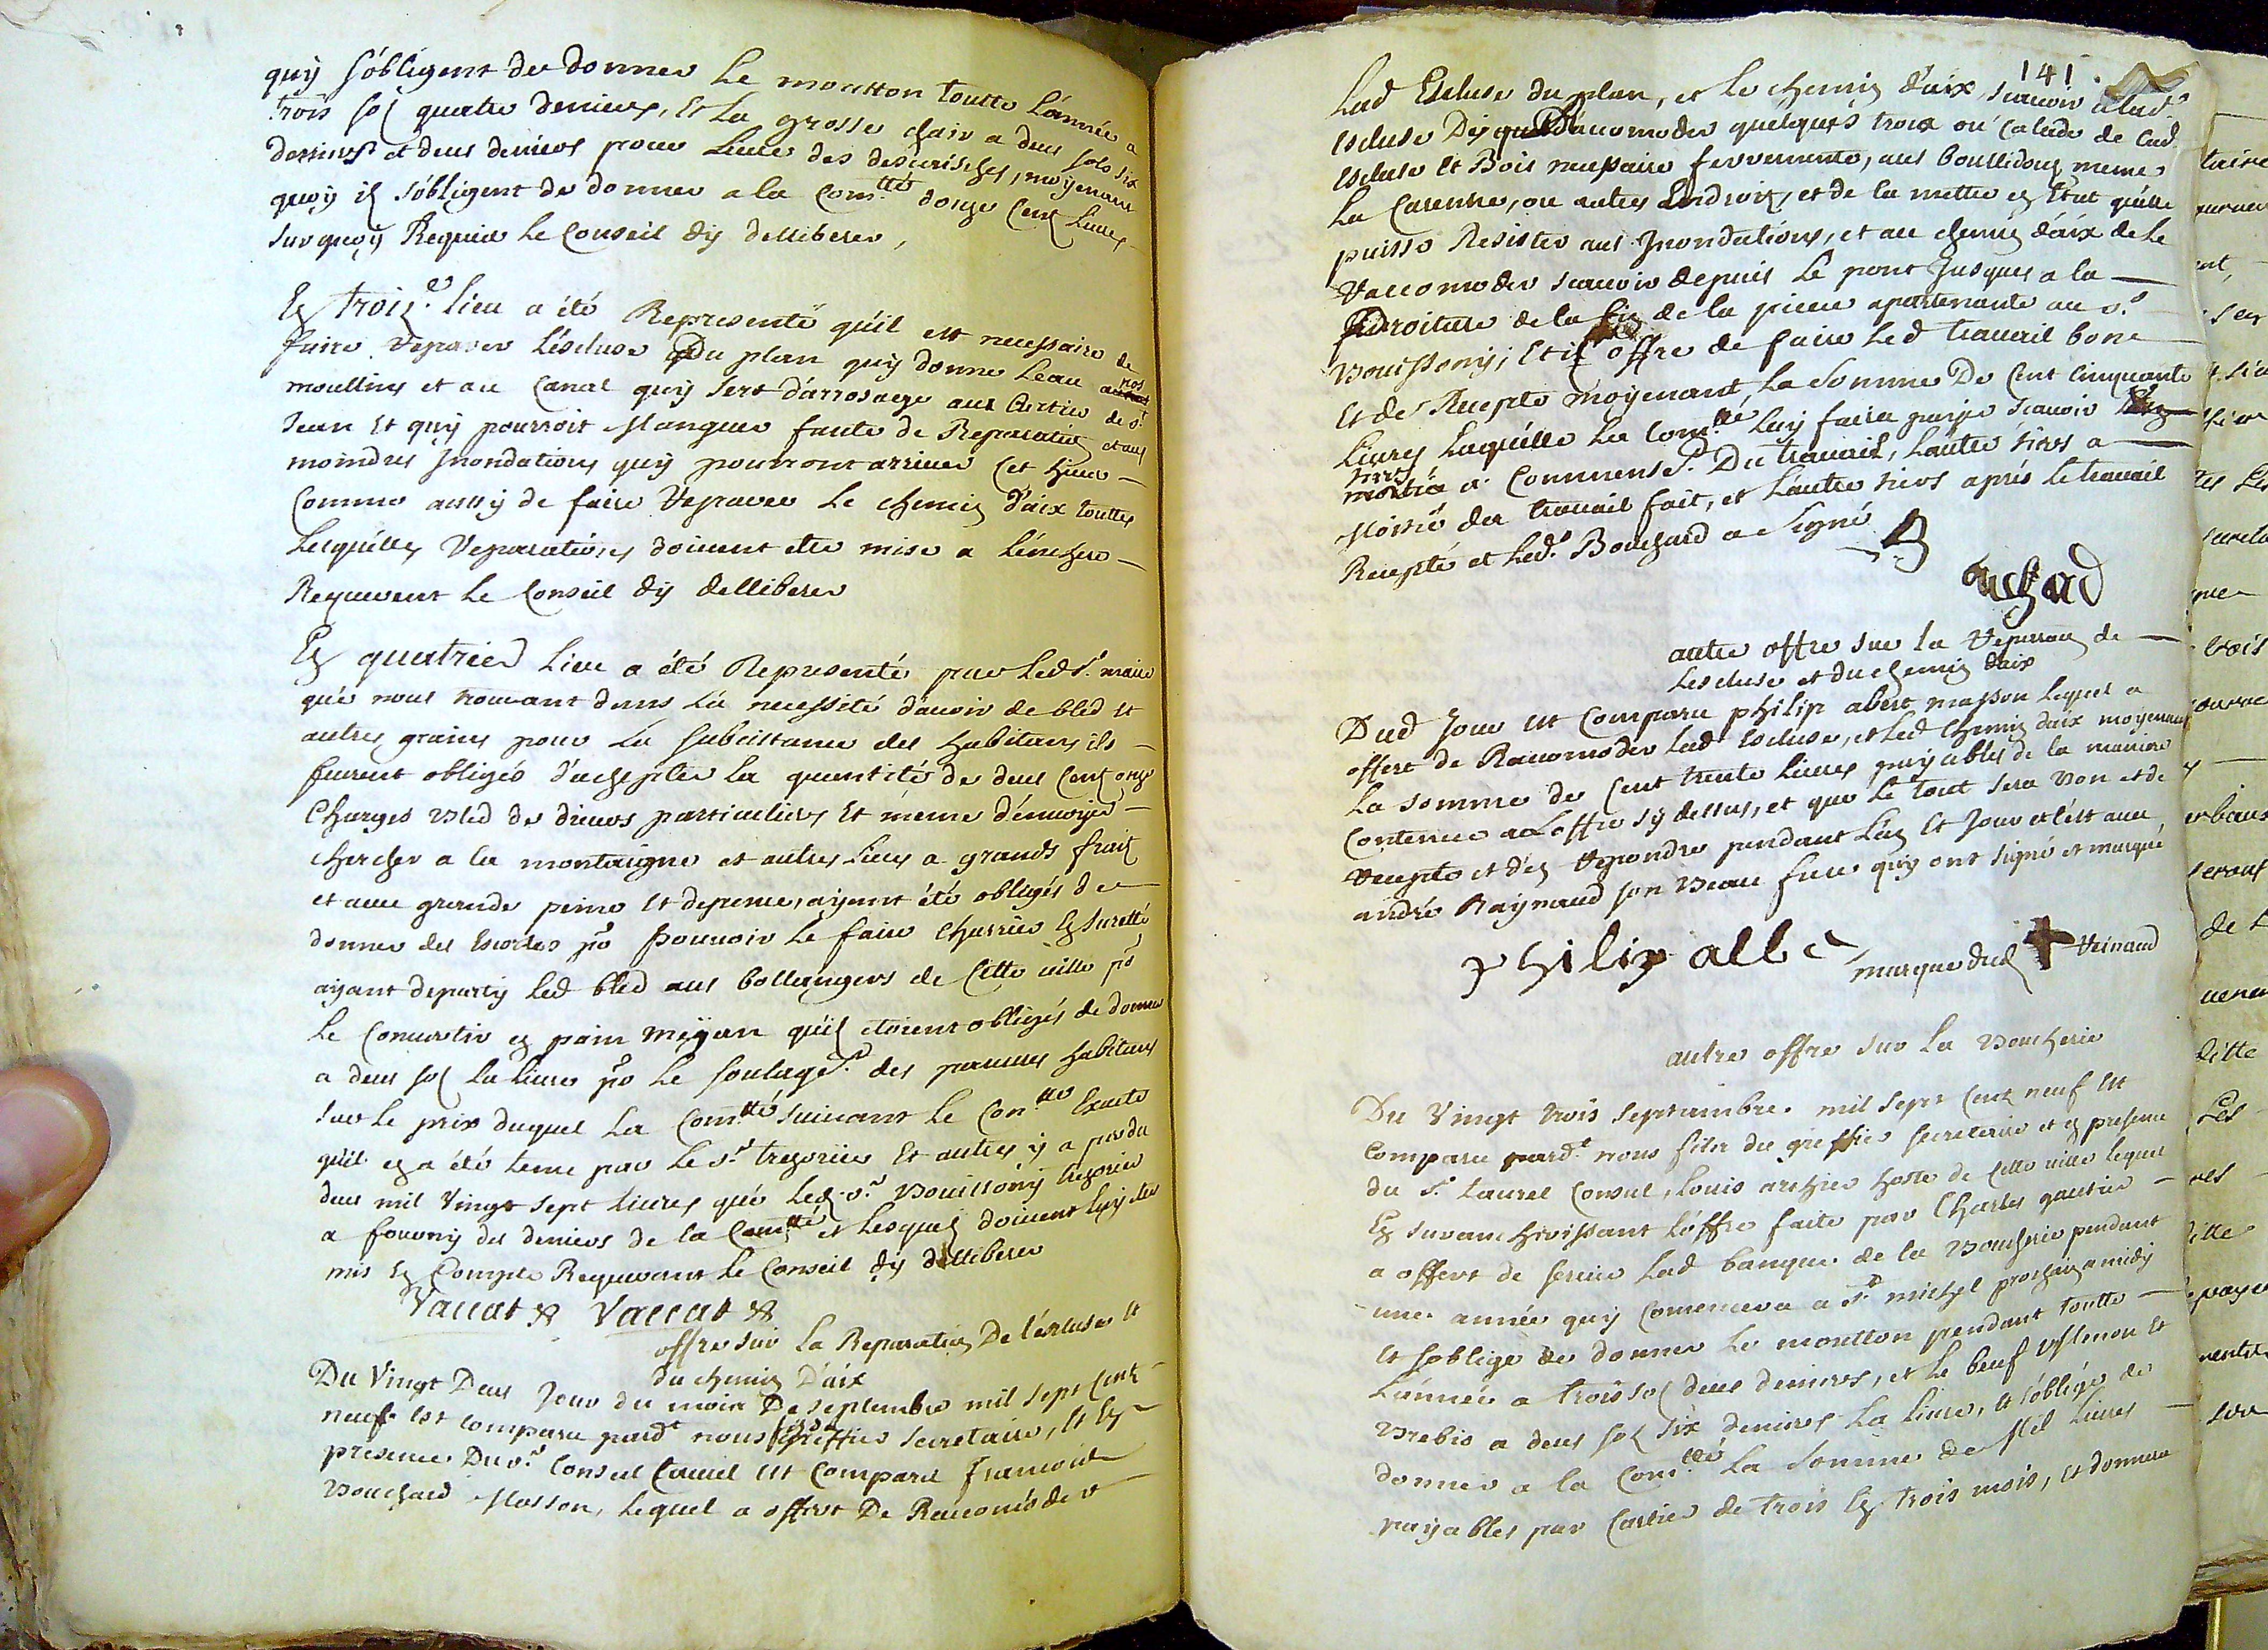 quy s'obligent de donner Le moutton toutte L'année a
trois sol quatre deniers, Et La grosse chair a deus sols six
deniers et deus deniers pour Liure des , moyenant
quoy il s'obligent de donner a la Com.tté douze Cent Liures
Sur quoy Requis Le Conseil d'y delliberer,
En trois.e lieu a été Representé qu'il est necessaire de
faire reparer L'escluse Du plan quy donne Leau a nos
moullins et au Canal quy sert d'arrosage aux Cartier de s.t
Jean Et quy pourroit Manquer faute de Reparation et aux
moindres Inondations quy pourront arriuer Cet hiuer
Comme aussy de faire reparer Le chemin d'aix touttes
Lesquelles reparations doiuent etre mise a L'enchere
Requerent Le Conseil d'y delliberer
En quatrie Lieu a été Representé par Led s.r maire
que nous trouuant dans La necessité d'auoir de bled et
autres grains pour La Subsistance des habitans ils
furent obligés d'achepter La quantité de deus Cent onze
Charges bled de diuers particuliers Et meme d'enuoyer
chercher a la montaigne et autres Lieus a grands frais
et aue grande peine Et depence, ayant été obligés de
donner des Escortes po.r pouuoir Le faire Charrier En Suretté
ayant departy Led bled aus bollangers de Cette uille po.r
Le Conuertir en pain moyan qu'il etoient obligés de donner
a deus sol La Liure po.r Le Soulage.t des pauures habitans
Sur le prix duquel La Com.tté suiuant Le Con.tte Exacte
qu'il en a été tenu par Le s.r tresorier Et autres y a perdu
deus mil Vingt sept Liures que Led s.r Bouissony trésorier
a fourny des deniers de la Com.tté et Lesquels doiuent Luy etre
mis En Compte Requerant Le Conseil d'y delliberer
Vaccat Vaccat
offre sur La Reparation De l'escluse et
du chemin D'aix
Du Vingt Deus Jour du mois De septembre mil sept Cent
neuf est comparu pard.t nous greffier secretaire, Et En
presence Du s.r Consul Laurel est Comparu francois
Bouchard Masson, Lequel a offert De Racomoder
141
Lad Escluse du plan, et Le chemin d'aix, scauoir a Lad.e
escluse D'y racomoder quelques trous ou Calade de Lad
escluse Et Bois necessaire ferrements, aus meme
La Carenne, ou autres Endroits, et de la mettre en Etat qu'elle
puisse Resister aus Inondations, et au chemin d'aix de Le
racomoder scauoir depuis Le pont Jusques a la
droiture de la fin de la piece apartenante au s.r
Bouissony; Et il offre de faire Led trauail bone
Et de Recepte moyenant La Somme De Cent Cinquante
Liures Laquelle La Com.tté Luy faira payer scauoir
tiers a Commense.t Du trauail, L'autre tiers a
Moitié du trauail fait, et L'autre tiers après Le trauail
Recepté et Led.t Bouchard a Signé
Bouchad
autre offre sur la reparraon de
Lescluse et du chemin d'aix
Dud Jour est Comparu philip albert masson Lequel a
offert de Racomoder Lad Escluse, et Led Chemin daix moyenant
La somme de Cent trente Liures payables de la maniere
Contenue a L'offre sy dessus, et que Le tout sera bon et de
recepte et d'en repondre pendant L'an Et Jour et c'est auec
andré Raynaud son beau frere quy ont signé et marqué
philip albe marque dud + reinaud
autre offre sur La Boucherie
Du Vingt trois septembre mil sept Cent neuf est
Comparu pard.t nous greffier secretaire et en presence
du s.r Laurel Consul, Louis archier hoste de Cette uille lequel
En surancherissant L'offre faite par Charles gautier
a offert de seruir Lad banque de la Boucherie pendant
une année quy Comencera a S.t michel prochain a midy
et s'oblige de donner Le moutton pendant toutte
L'année a trois sol deus deniers, et Le beuf Menon et
Brebis a deus sol six deniers La Liure, et s'oblige de
donner a la Com.tté La Somme de Mil Liures
payables par Cartier de trois En trois mois, et donnera